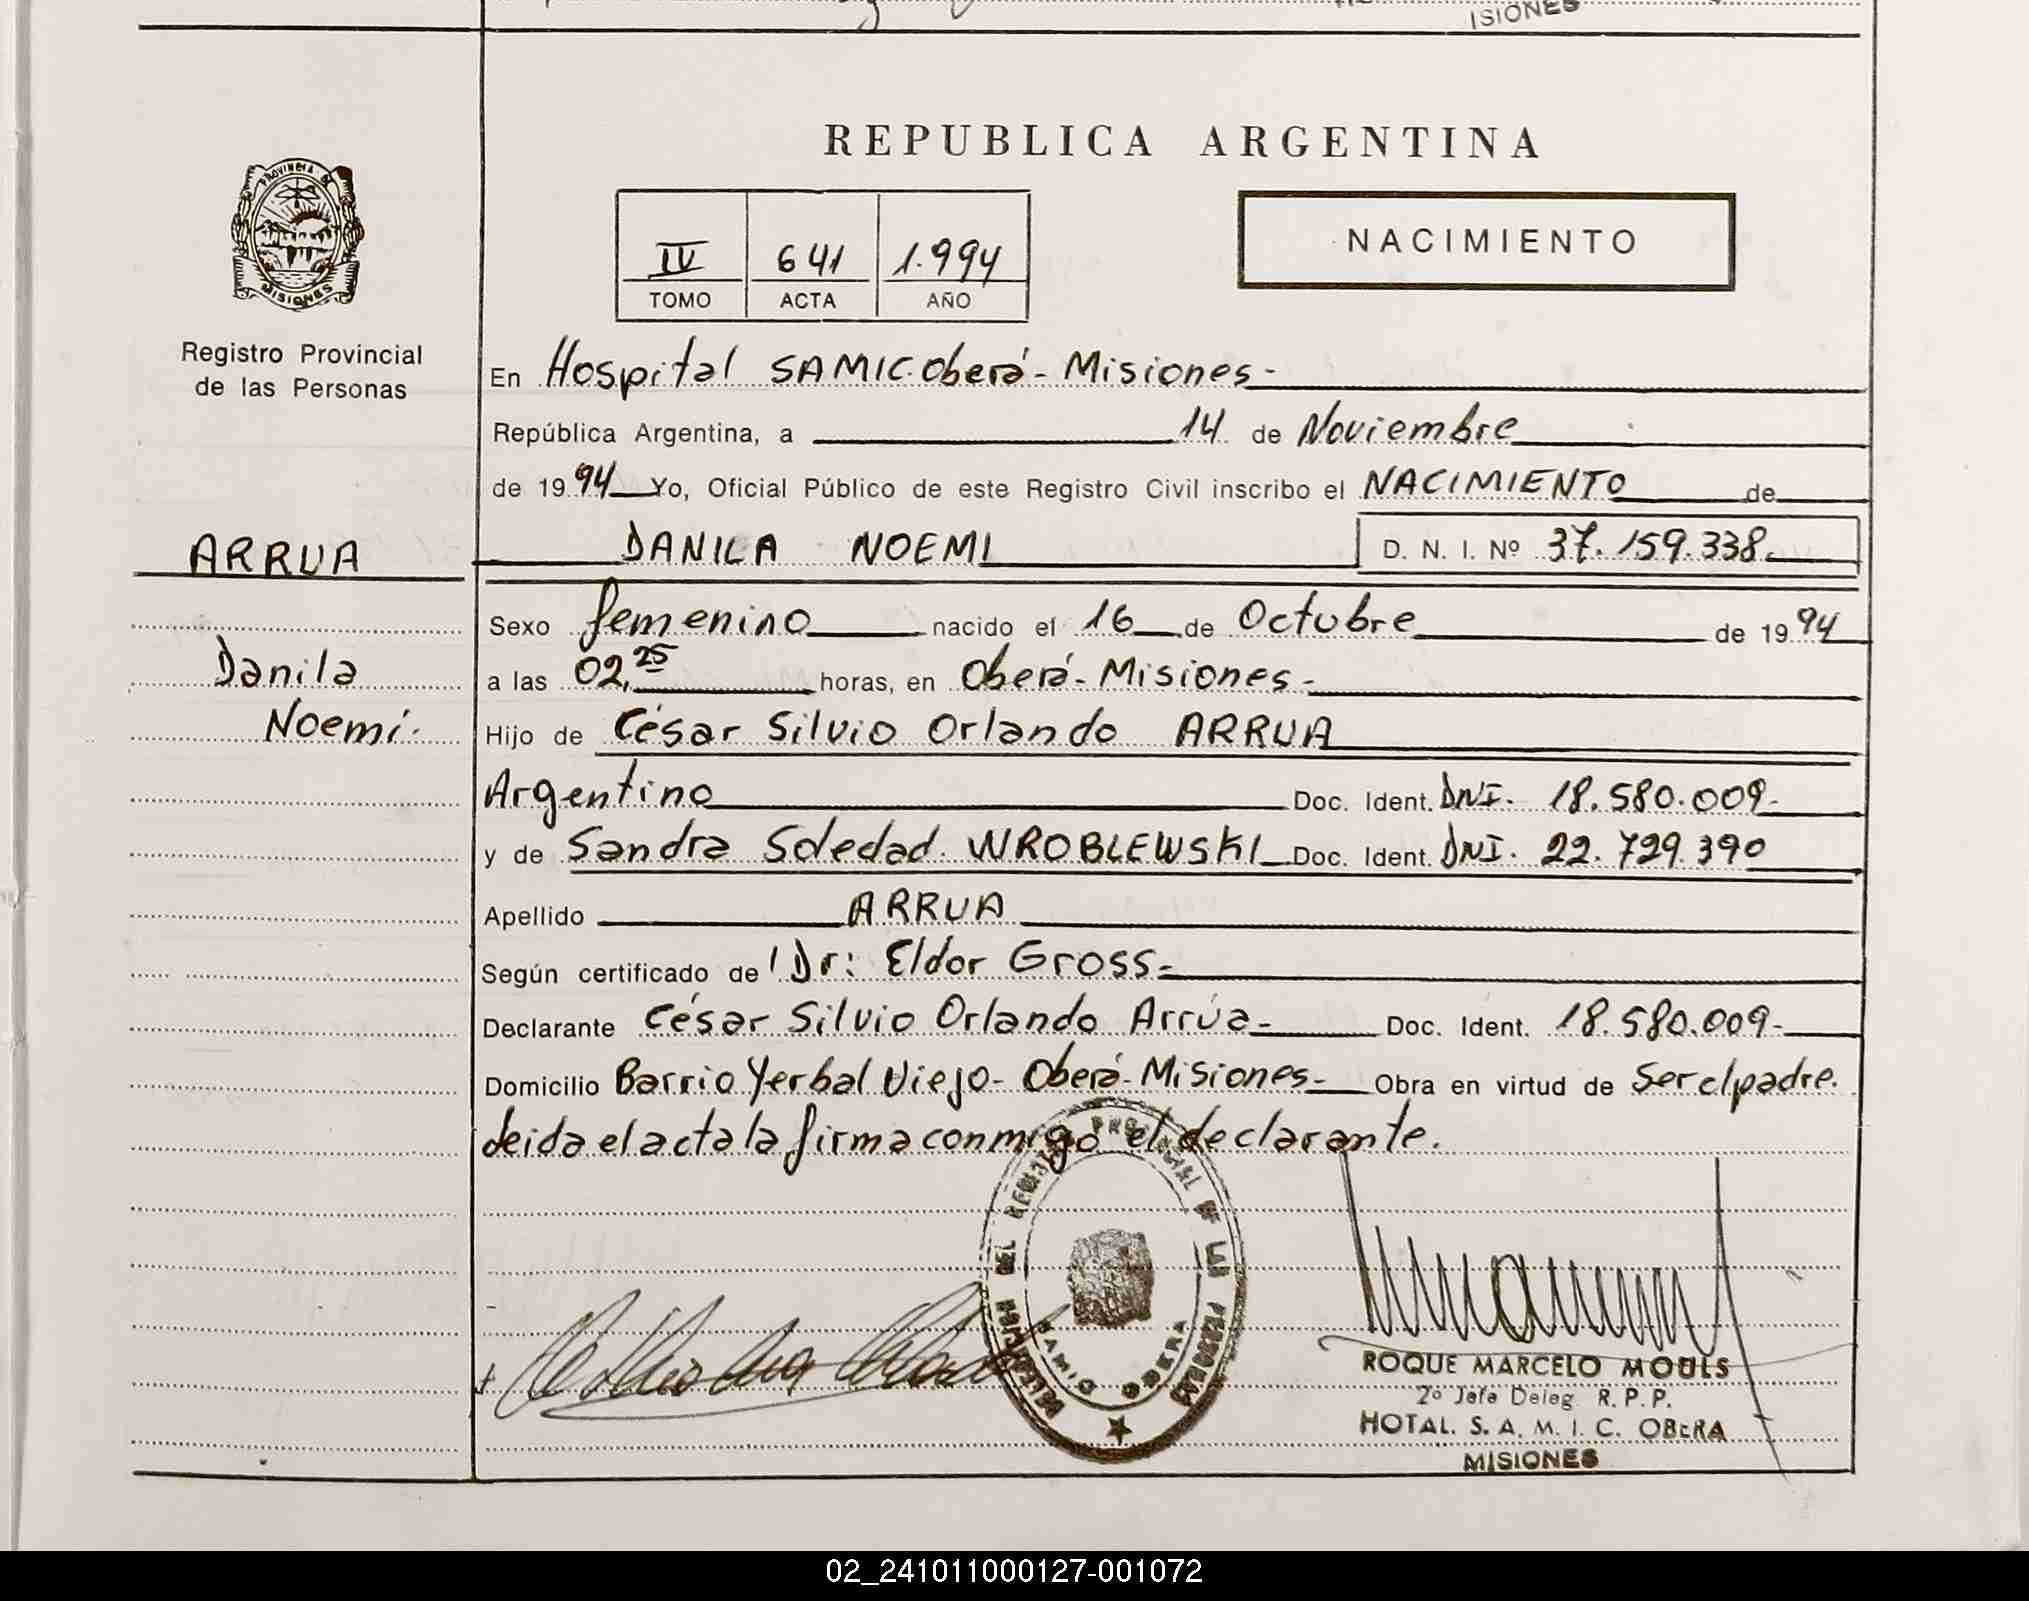 ISIONES
REPUBLICA ARGENTINA
PROVINCIA DE
MISIONES
IV 641 1.994
TOMO ACTA AÑO
NACIMIENTO
Registro Provincial
de las Personas
En Hospital SAMIC Oberá - Misiones -
República Argentina, a 14 de Noviembre
de 1994 Yo, Oficial Público de este Registro Civil inscribo el NACIMIENTO de
ARRUA
DANILA NOEMI D. N. I. Nº 37.159.338.
Sexo femenino nacido el 16 de Octubre de 1994
Danila
a las 02,25 horas, en Oberá - Misiones -
Noemí.
Hijo de César Silvio Orlando ARRUA
Argentino Doc. Ident. DNI. 18.580.009-
y de Sandra Soledad WROBLEWSKI Doc. Ident. DNI. 22.729.390
Apellido ARRUA
Según certificado de Dr: Eldor Gross-
Declarante César Silvio Orlando Arrúa- Doc. Ident. 18.580.009-
Domicilio Barrio Yerbal Viejo - Oberá - Misiones - Obra en virtud de ser el padre.
Leida el acta la firma conmigo el declarante.
PROVINCIAL DE LAS PERSONAS
SAMIC OBERA
ROQUE MARCELO MOULS
2º Jefe Deleg. R. P. P.
HOTAL. S. A. M. I. C. OBERA
MISIONES
02_241011000127-001072